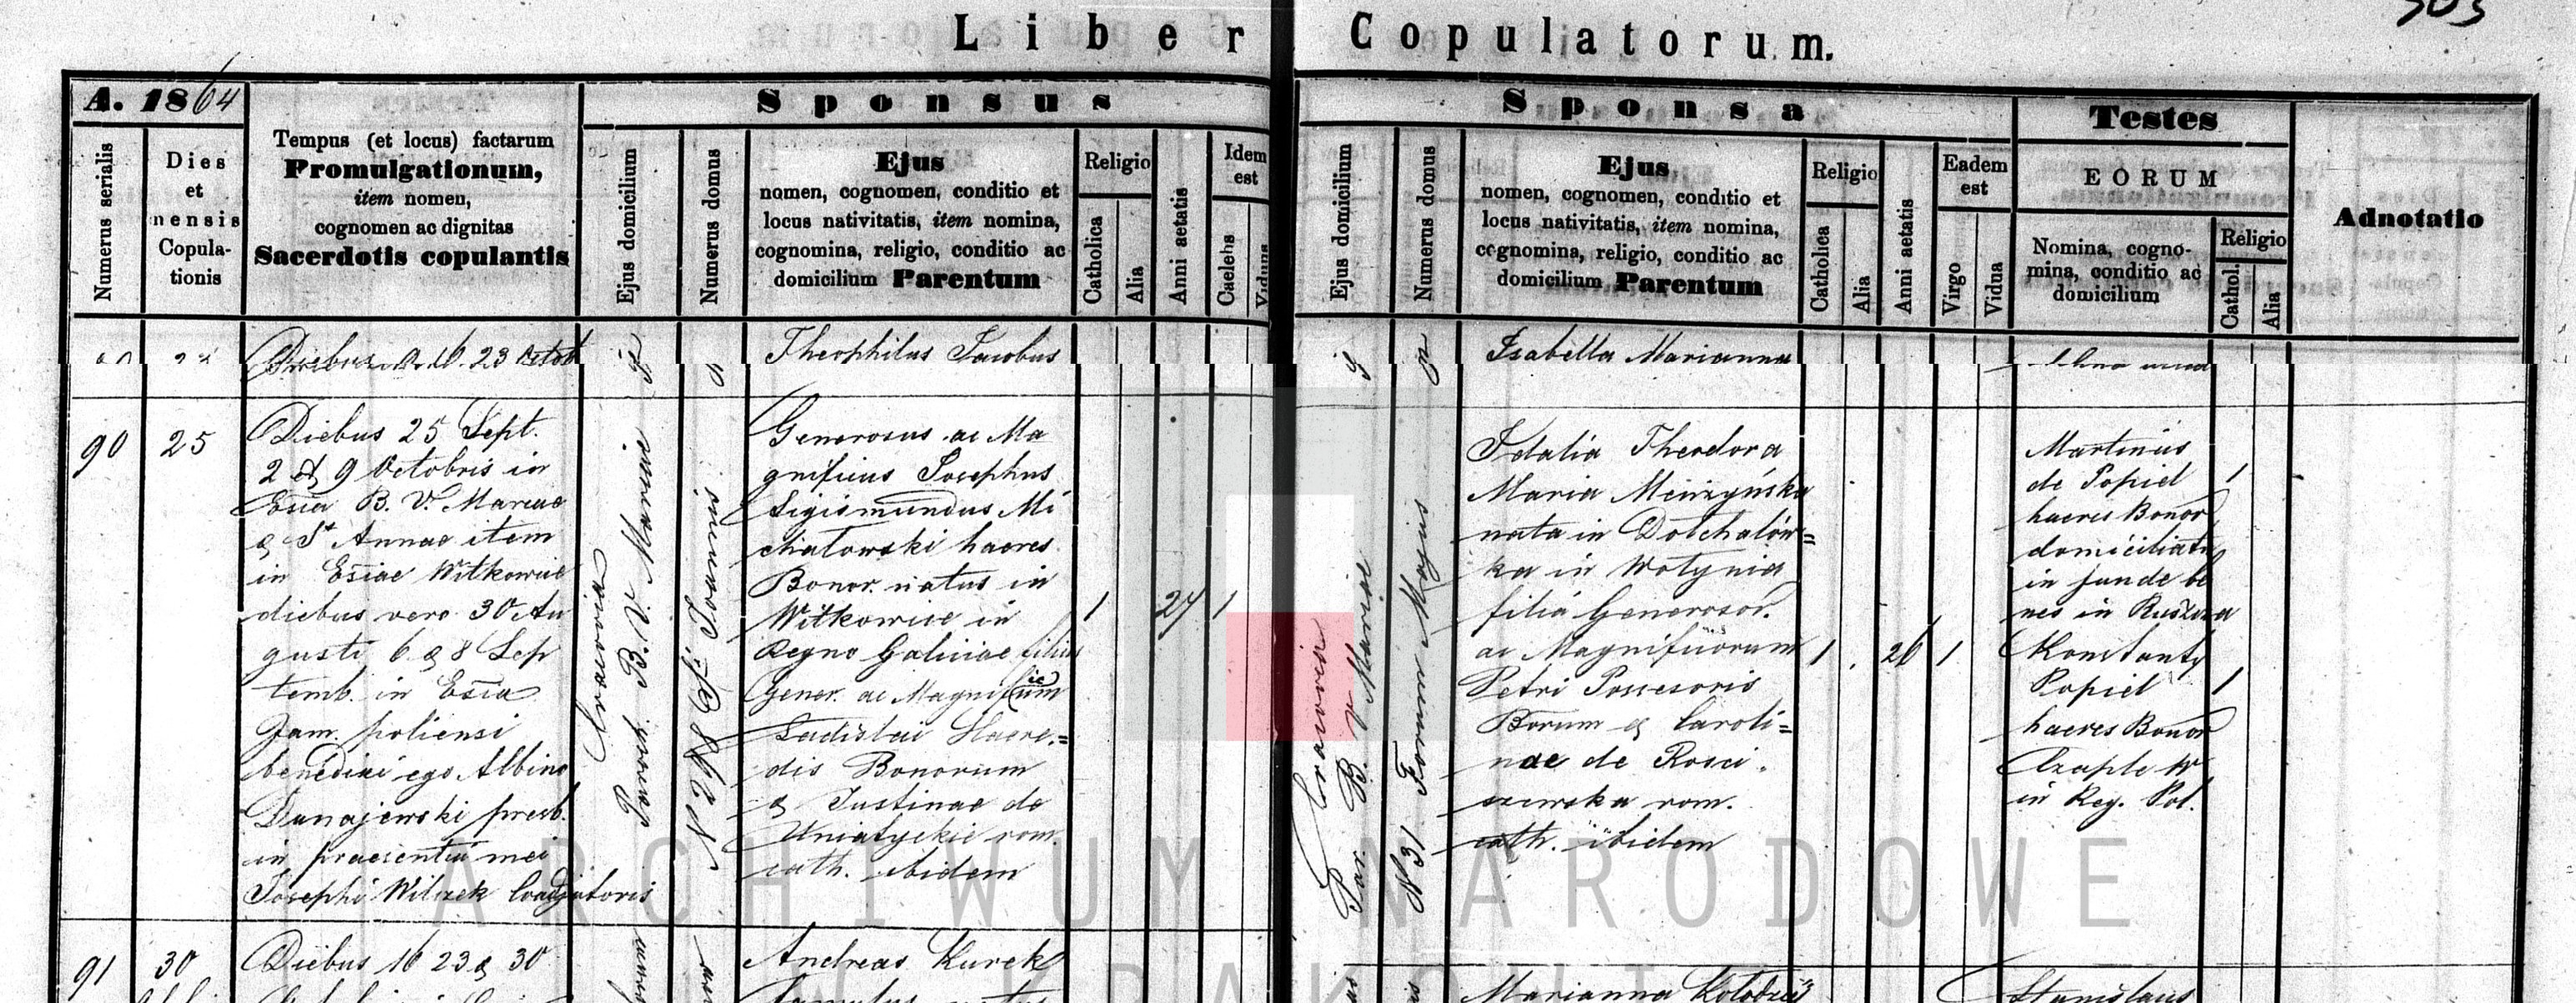 303
Liber Copulatorum.
A. 1864
Sponsus
Sponsa
Testes
Adnotatio
Numerus serialis
Dies
et
mensis
Copula-
tionis
Tempus (et locus) factarum
Promulgationum,
item nomen,
cognomen ac dignitas
Sacerdotis copulantis
Ejus domicilium
Numerus domus
Ejus
nomen, cognomen, conditio et
locus nativitatis, item nomina,
cognomina, religio, conditio ac
domicilium Parentum
Religio
Catholica
Alia
Anni aetatis
Idem
est
Caelebs
Viduus
Ejus domicilium
Numerus domus
Ejus
nomen, cognomen, conditio et
locus nativitatis, item nomina,
cognomina, religio, conditio ac
domicilium Parentum
Religio
Catholica
Alia
Anni aetatis
Eadem
est
Virgo
Vidua
EORUM
Nomina, cogno-
mina, conditio ac
domicilium
Religio
Cathol.
Alia
Diebus 9. 16. 23 Octob
Theophilus Jacobus
Isabella Marianna
90
25
Diebus 25 Sept.
2 & 9 Octobris in
Esia B. V. Mariae
& St Annae item
in Esiae Witkowice
diebus vero 30 Au
gusti, 6 & 8 Sep
temb. in Esia
Jam. poliensi
benedixi ego Albino
Dunajewski presb.
in praesentia mei
Josephi Wilczek Coadjutoris
Cracovia
Paroch. B. V. Mariae
N 268 St. Joannis
Generosus ac Ma
gnificus Josephus
Sigismundus Mi
chałowski haeres
Bonor. natus in
Witkowice in
Regno Galiciae filius
Gener. ac Magnificum
Ladislai Haere=
dis Bonorum
& Justinae de
Uniatyckie rom.
cath. ibidem
1
27
1
Cracovia
Par. B. V Mariae
N 31 Forum Majus
Idalia Theodora
Maria Mężyńska
nata in Dołchalow=
ka in Wołynia
filia Generosor.
ac Magnificorum
Petri Possesoris
Borum & Caroli=
nae de Rosci.
szewska rom.
cath. ibidem
1
26
1
Martinus
de Popiel
haeres Bonor
domiciliatu
in funde be
nes in Ruszcza
1
Konstanty
Popiel
haeres Bonor
Czaple W
in Reg. Pol.
1
91
30
Diebus 16 23 & 30
Andreas Kurek
famulus natus
Marianna Kołodziej
Stanislaus
ARCHIWUM NARODOWE
W KRAKOWIE